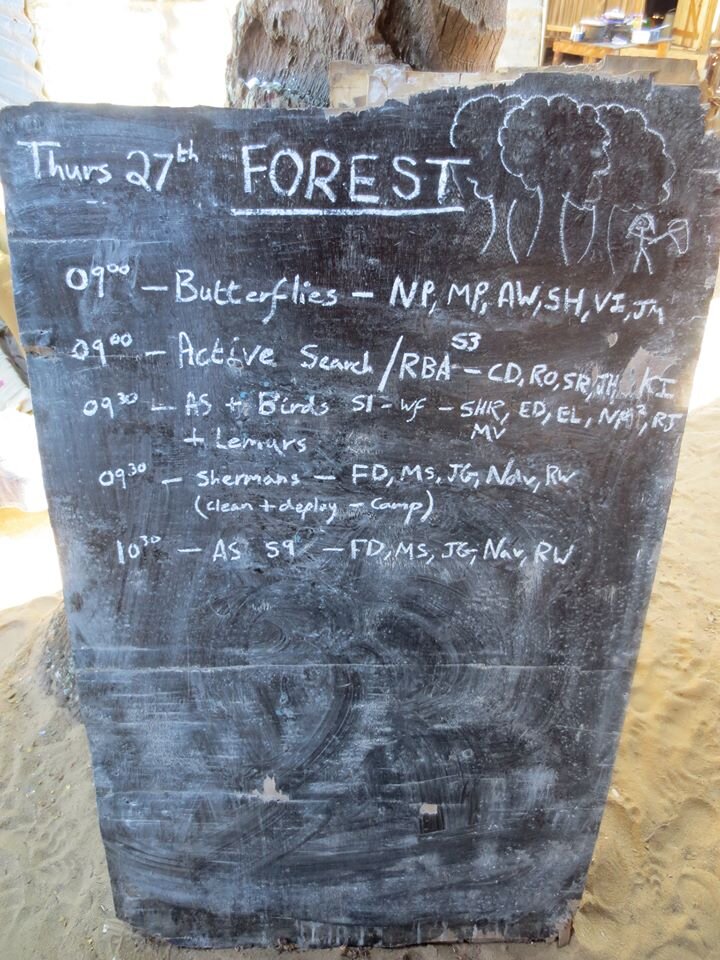 Thurs 27th FOREST
0900 – Butterflies – NP, MP, AW, SH, VI, JM
S3
0900 – Active Search / RBA – CD, RO, SR, JH, KI
0930 – AS + Birds S1 – WF – SHR, ED, EL, RJ
+ Lemurs MV
0930 – Shermans – FD, MS, JG, Nav, RW
(clean + deploy – camp)
1030 – AS S9 – FD, MS, JG, Nav, RW